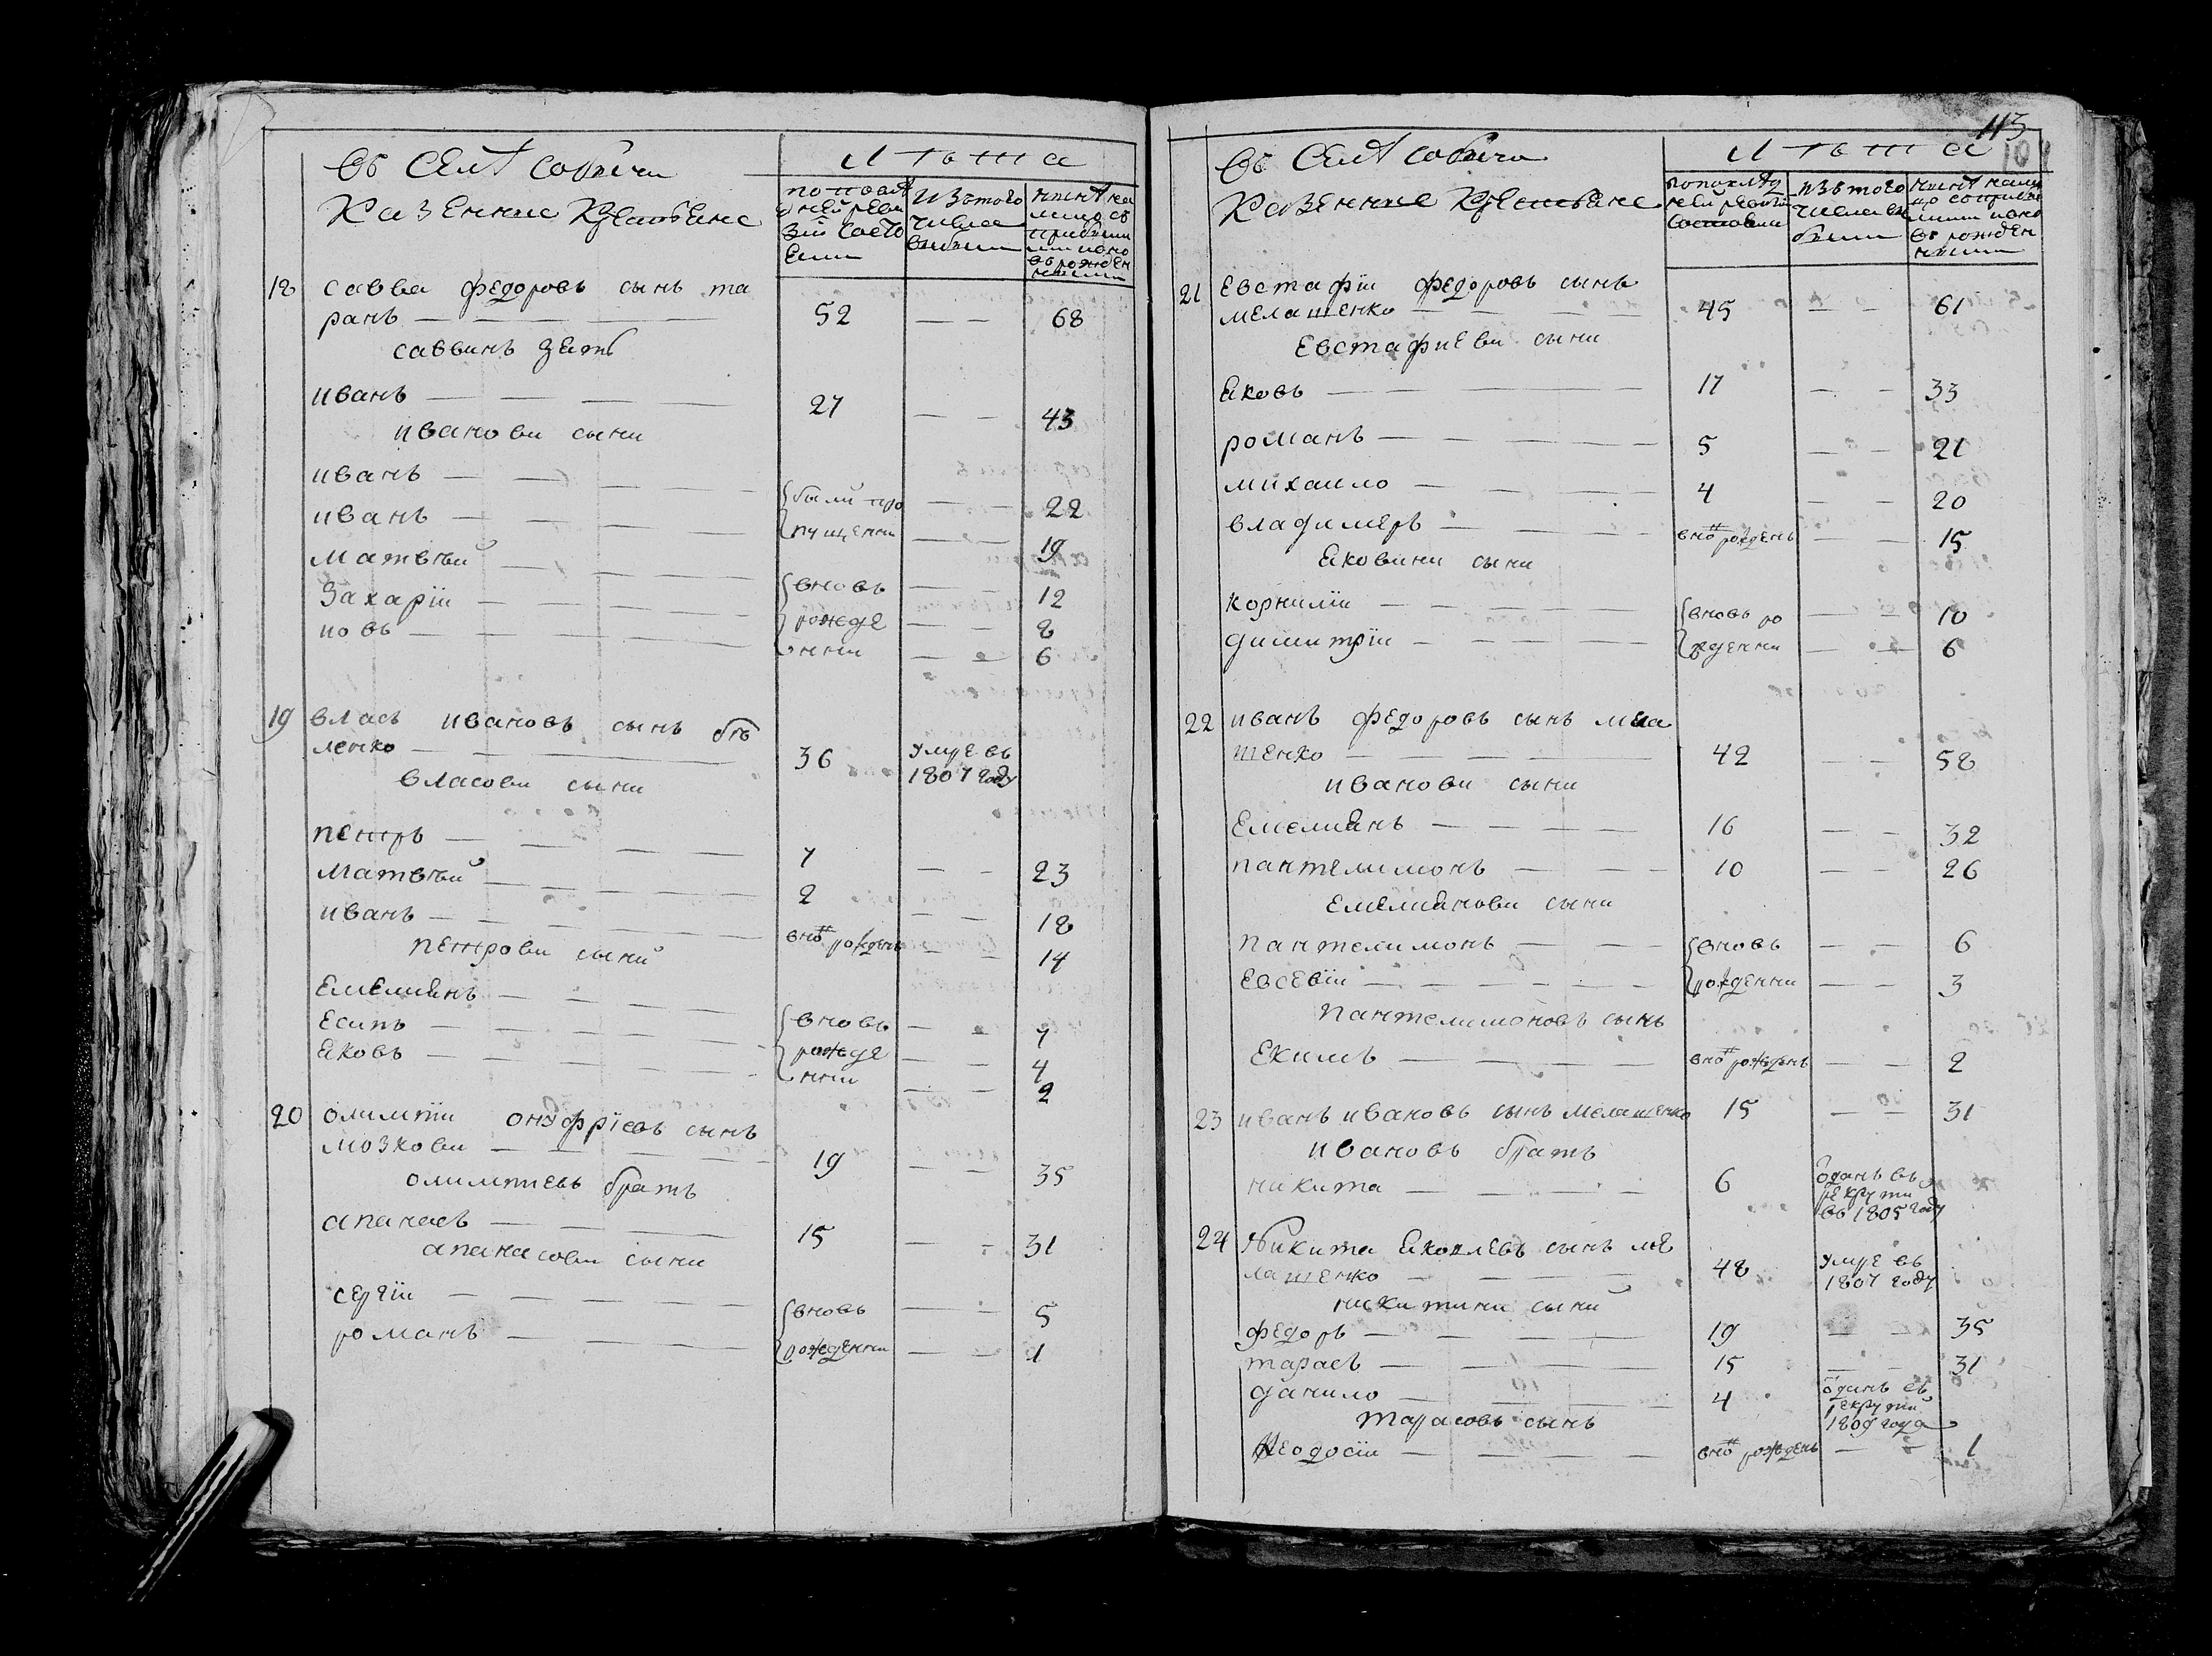 Въ Селѣ Собичи
Казенние Крестьяне
Лѣта
по послѣ
дней реви
зіи Состо
Ели
Изътого
Числа
выбыли
нинѣ на
лицо со
прибили
ми и но
во рожден
ними
18 савва федоровъ сынъ та
ранъ — 52 — — 68
саввинъ зять
иванъ — 27 — — 43
иванови сыни
иванъ — были про — — 22
иванъ — пущенни — — 19
матвѣй — вновь — — 12
Захарій — рожде — — 8
иовъ — нни — — 6
19 власъ ивановъ сынъ бѣ
ленко — 36 умре въ
1807 году
власови сыни
петръ — 7 — — 23
матвѣй — 2 — — 18
иванъ — вно рожденъ — — 14
петрови сыни
Емелиянъ —
Есипъ — вновь — — 7
Яковъ — рожде — — 4
нни — — 2
20 олимпій онуфріевъ сынъ
мозкови — 19 — — 35
олимпиевъ братъ
апанасъ — 15 — — 31
апанасови сыни
сергій — вновь — — 5
романъ — рожденни — — 1
113
Въ Селѣ Собичи
Казенние Крестьяне
Лѣта
попослѣд
ней ревизіи
состояли
изътого
числа вы
были
нинѣ нали
цо соприбы
лими иново
во рожден
ними
21 Евстафій федоровъ сынъ
мелашенко — 45 — — 61
Евстафиеви сыни
Яковъ — 17 — — 33
романъ — 5 — — 21
михаило — 4 — — 20
владимеръ — вно рожденъ — — 15
Яковини сыни
корнилій — вновь ро — — 10
димитрій — жденни — — 6
22 иванъ федоровъ сынъ мела
шенко — 42 — — 58
иванови сыни
Емелиянъ — 16 — — 32
пантелимонъ — 10 — — 26
Емелиянови сыни
пантелимонъ — вновь — — 6
Евсевій — рожденни — — 3
пантелимоновъ сынъ
Екимъ — вно рожденъ — — 2
23 иванъ ивановъ сынъ мелашенко 15 — — 31
ивановъ братъ
никита — 6 одань въ
рекрути
въ 1805 году
24 Никита Яковлевъ сынъ ме
лашенко — 48 умре въ
1807 году
никитини сыни
федоръ — 19 — — 35
тарасъ — 15 — — 31
данило — 4 оданъ въ
рекрути
1809 года
тарасовъ сынъ
Феодосій — вно рожденъ — — 1